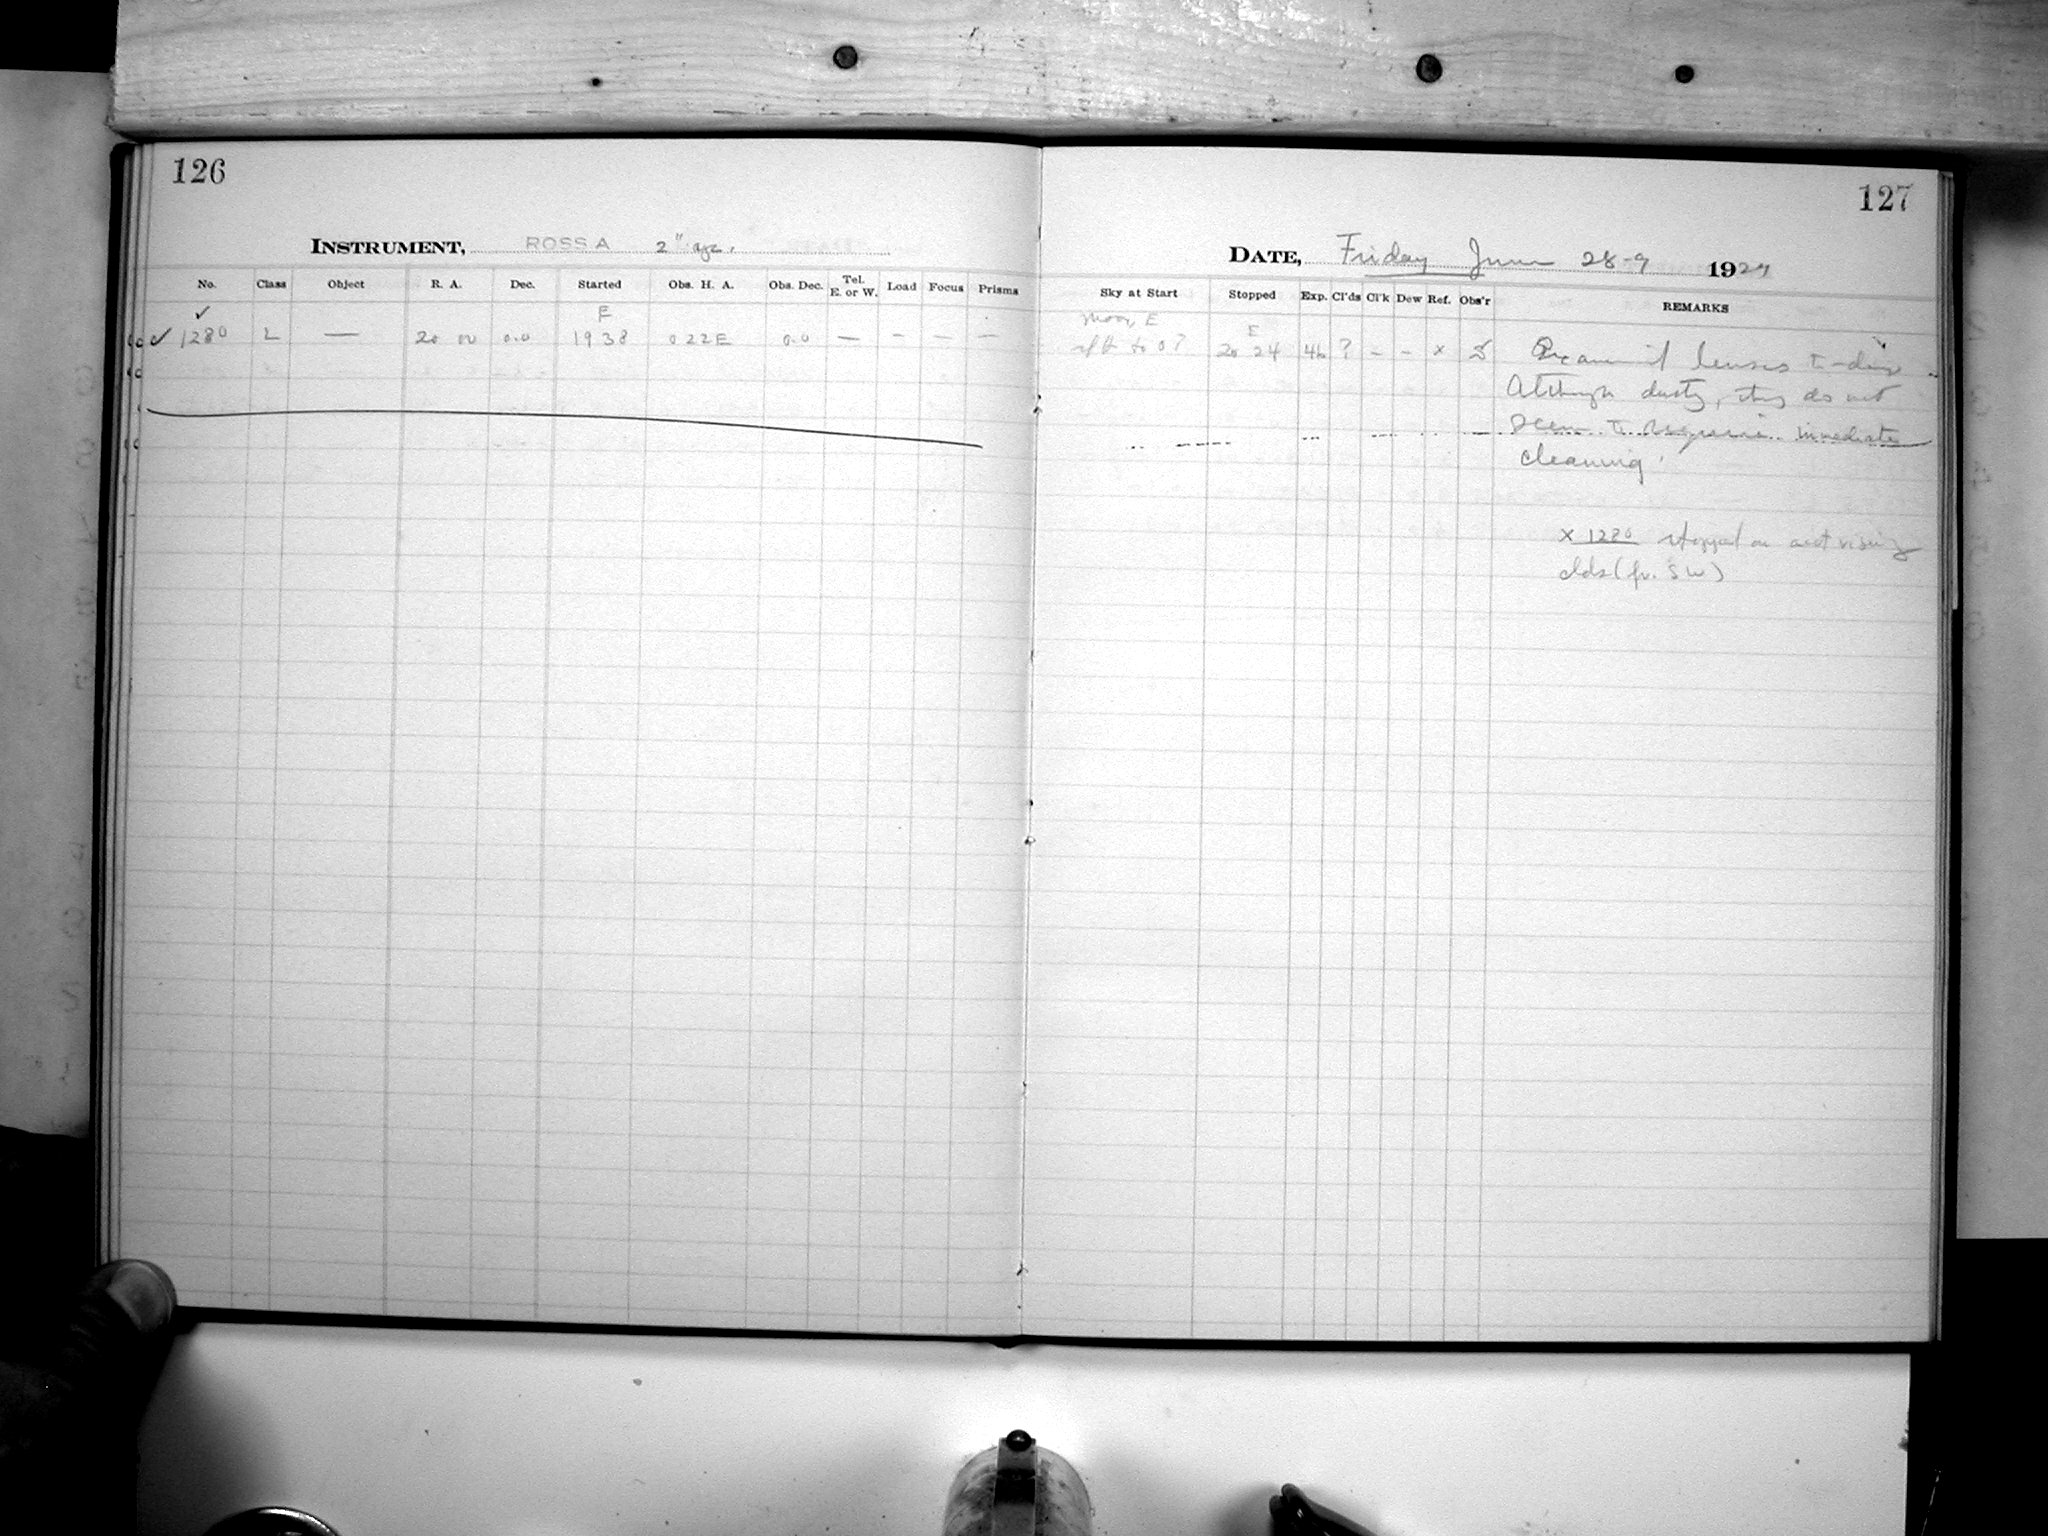 126
127
INSTRUMENT, ROSS A 2" ap.
DATE, Friday June 28-9 1929
No. Class Object R. A. Dec. Started Obs. H. A. Obs. Dec. Tel. E. or W. Load Focus Prisms
Sky at Start Stopped Exp. Cl'ds Cl'k Dew Ref. Obs'r REMARKS
✓ E
✓ 1280 L — 20 00 0.0 1938 0 22 E 0.0 — - — —
Moon, E
to 0? E
20 24 46 ? - - x
lenses to-day
Although dusty, they do not
seem to require immediate
cleaning.
x 1280 stopped on acct rising
clds (fr. SW)